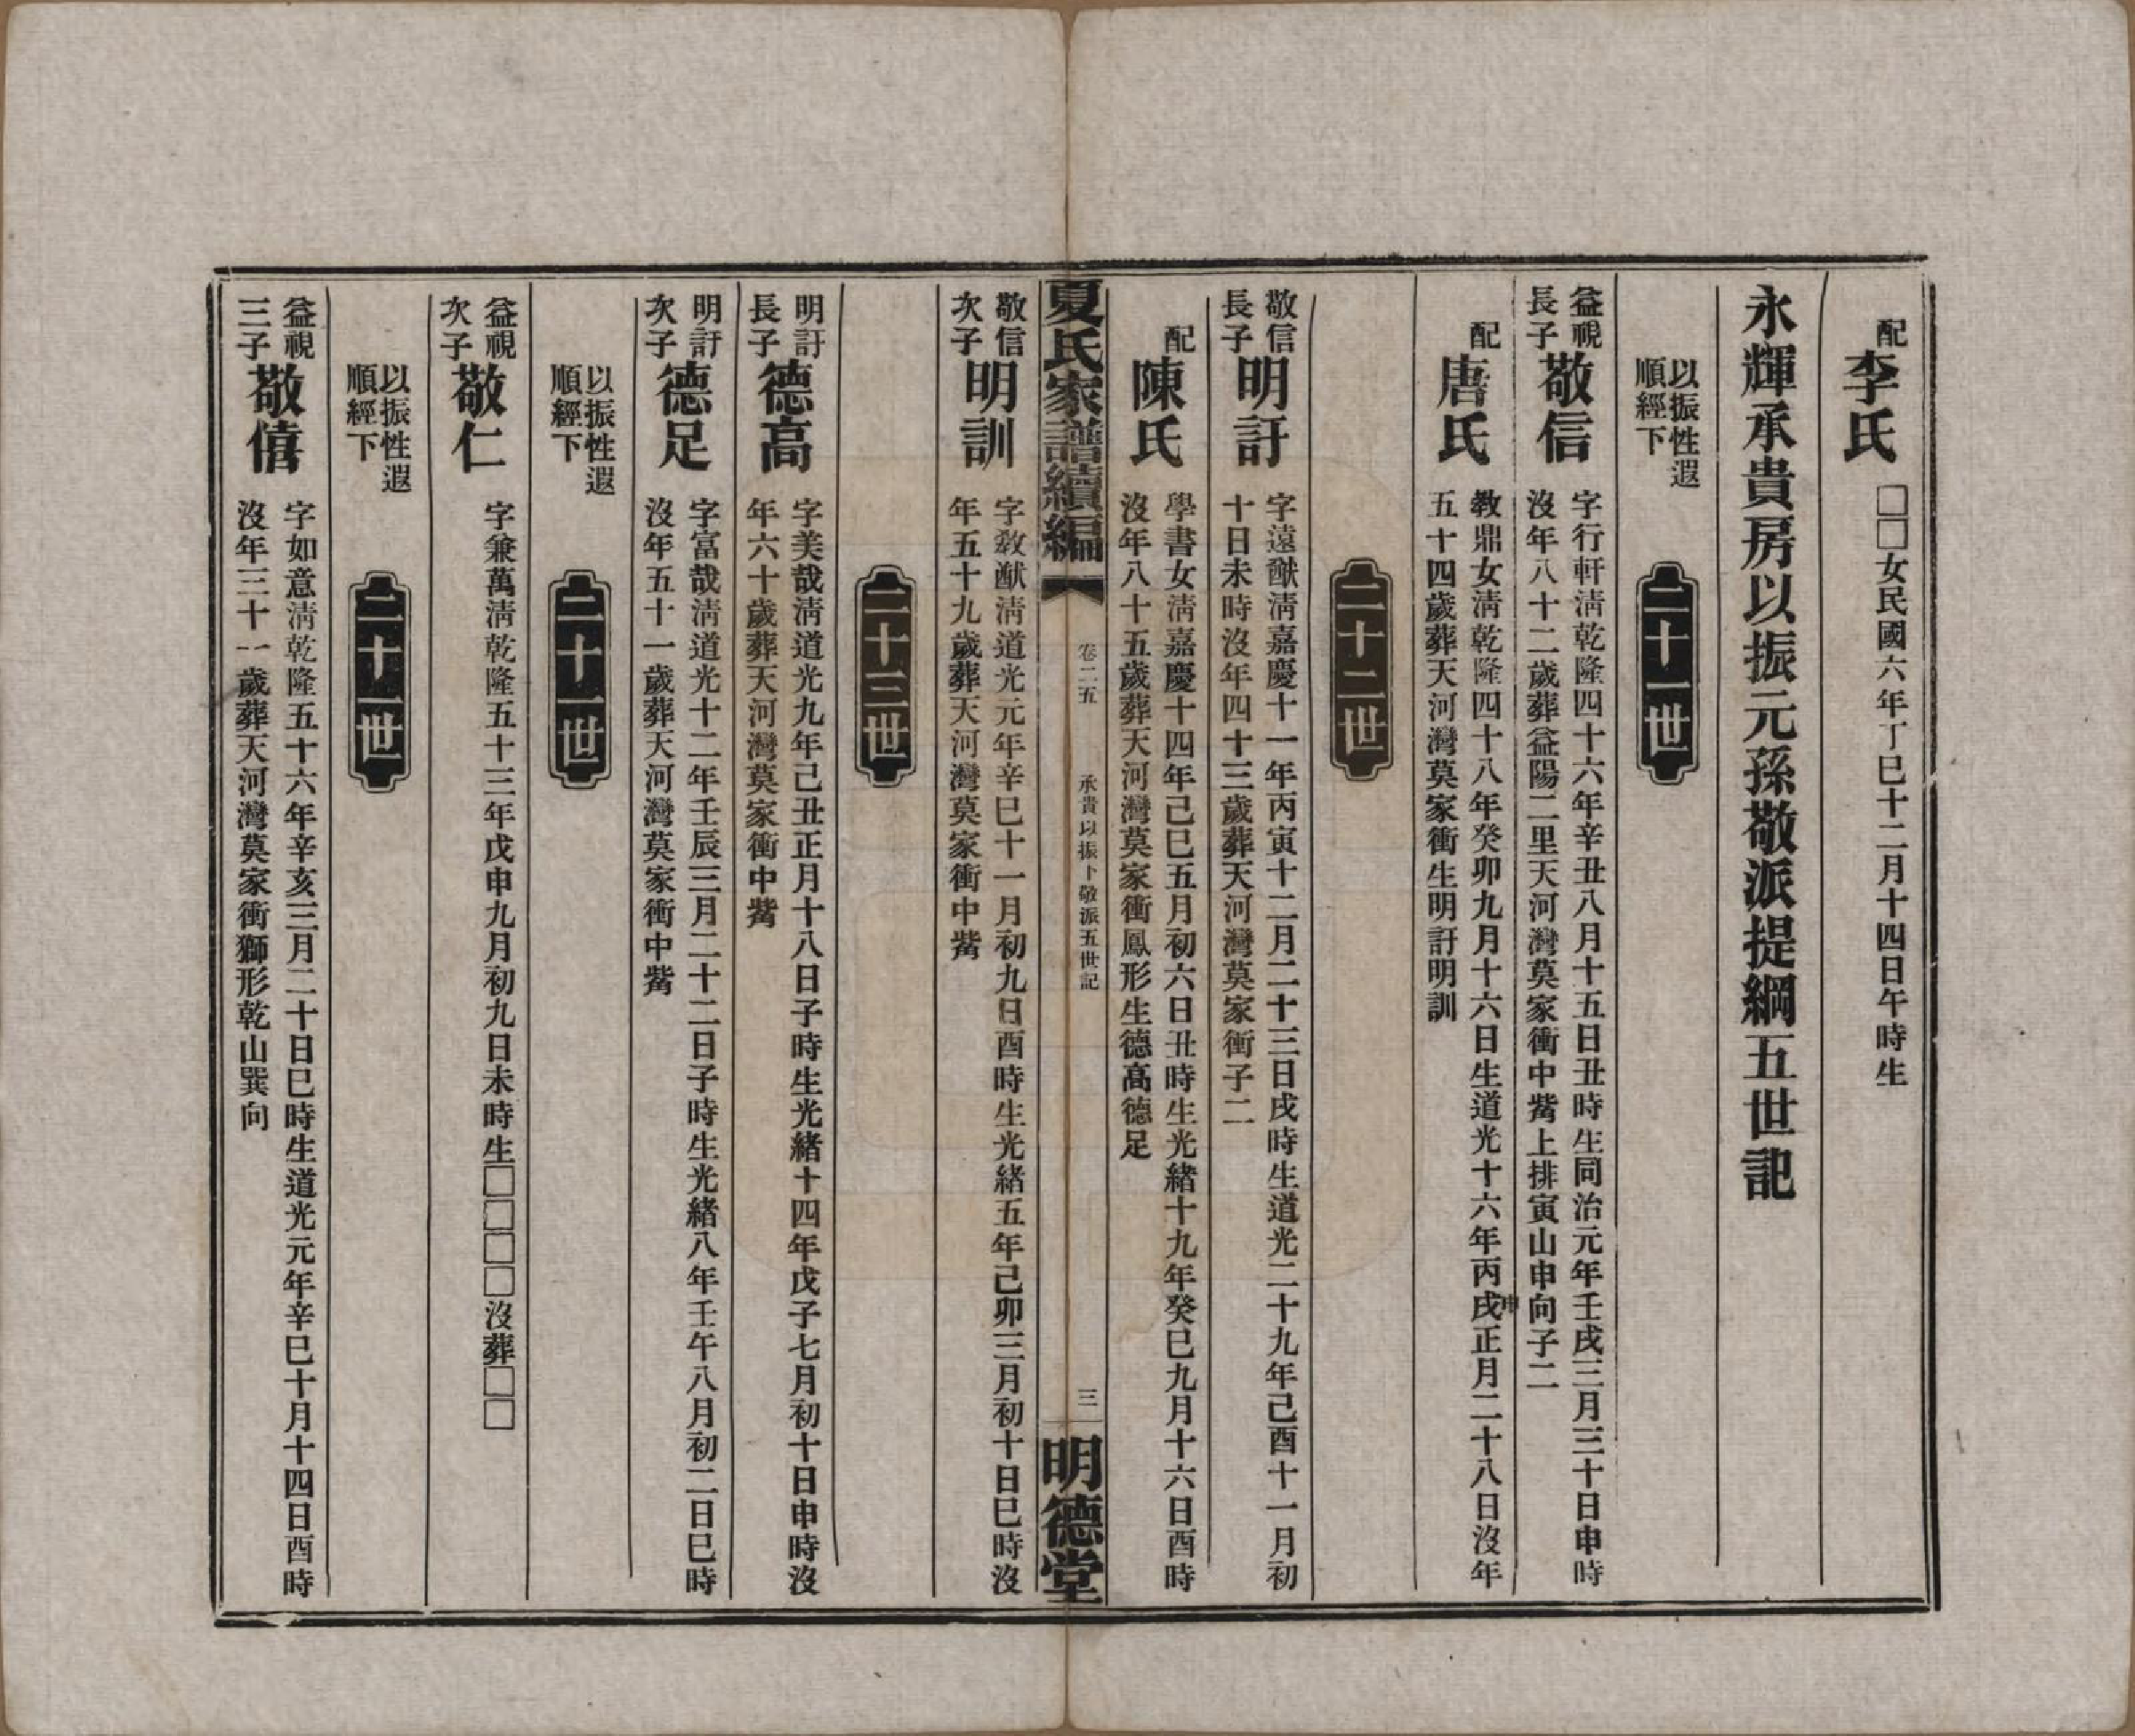 配
李氏
□□女民國六年丁巳十二月十四日午時生
永輝承貴房以振元孫敬派提綱五世記
以振性遐
順經下
二十一世
益視
長子
敬信
字行軒淸乾隆四十六年辛丑八月十五日丑時生同治元年壬戌三月三十日申時
沒年八十二歲葬益陽二里天河灣莫家衝中觜上排寅山申向子二
配
唐氏
教鼎女淸乾隆四十八年癸卯九月十六日生道光十六年丙戌申正月二十八日沒年
五十四歲葬天河灣莫家衝生明訏明訓
二十二世
敬信
長子
明訏
字遠猷淸嘉慶十一年丙寅十二月二十三日戌時生道光二十九年己酉十一月初
十日未時沒年四十三歲葬天河灣莫家衝子二
配
陳氏
學書女淸嘉慶十四年己巳五月初六日丑時生光緒十九年癸巳九月十六日酉時
沒年八十五歲葬天河灣莫家衝鳳形生德高德足
夏氏家譜續編
卷二五
承貴以振卜敬派五世記
三
明德堂
敬信
次子
明訓
字敎猷淸道光元年辛巳十一月初九日酉時生光緒五年己卯三月初十日巳時沒
年五十九歲葬天河灣莫家衝中觜
二十三世
明訏
長子
德高
字美哉淸道光九年己丑正月十八日子時生光緒十四年戊子七月初十日申時沒
年六十歲葬天河灣莫家衝中觜
明訏
次子
德足
字富哉淸道光十二年壬辰三月二十二日子時生光緒八年壬午八月初二日巳時
沒年五十一歲葬天河灣莫家衝中觜
以振性遐
順經下
二十一世
益視
次子
敬仁
字兼萬淸乾隆五十三年戊申九月初九日未時生□□□□沒葬□□
以振性遐
順經下
二十一世
益視
三子
敬僖
字如意淸乾隆五十六年辛亥三月二十日巳時生道光元年辛巳十月十四日酉時
沒年三十一歲葬天河灣莫家衝獅形乾山巽向